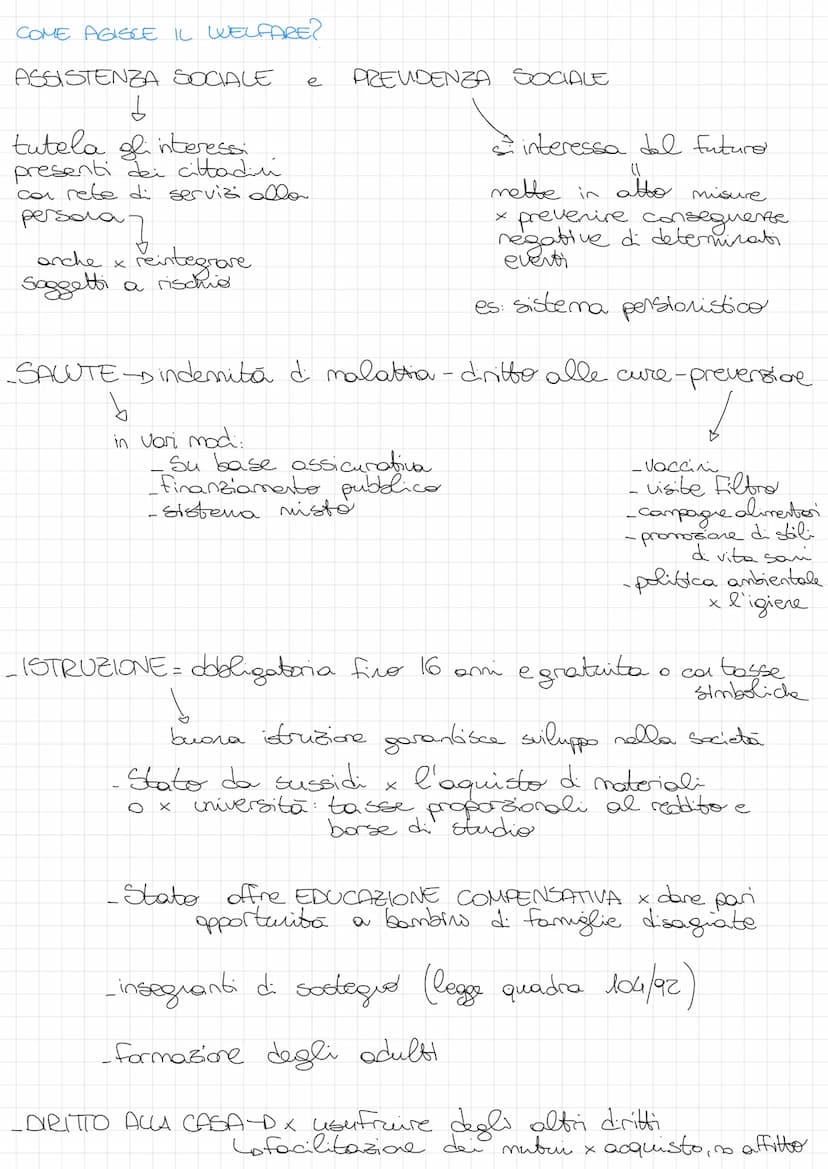 COME AGISCE IL WELFARE?
ASSISTENZA SOCIALE e PREVIDENZA SOCIALE
tutela gli interessi
presenti dei cittadini
con rete di servizi alla
persona
anche x reintegrare
soggetti a rischio
si interessa del futuro
mette in atto misure
x prevenire conseguenze
negative di determinati
eventi
es: sistema pensionistico
- SALUTE → indennità di malattia - diritto alle cure - prevenzione
in vari modi:
- su base assicurativa
- finanziamento pubblico
- sistema misto
- vaccini
- visite filtro
- campagne alimentari
- promozione di stili
di vita sani
- politica ambientale
x l'igiene
- ISTRUZIONE = obbligatoria fino 16 anni e gratuita o con tasse
simboliche
buona istruzione garantisce sviluppo nella società
- Stato da sussidi x l'aquisto di materiali
o x università: tasse proporzionali al reddito e
borse di studio
- Stato offre EDUCAZIONE COMPENSATIVA x dare pari
opportunità a bambini di famiglie disagiate
- insegnanti di sostegno (legge quadra 104/92)
- formazione degli adulti
- DIRITTO ALLA CASA → x usufruire degli altri diritti
↳ facilitazione dei mutui x acquisto, no affitto